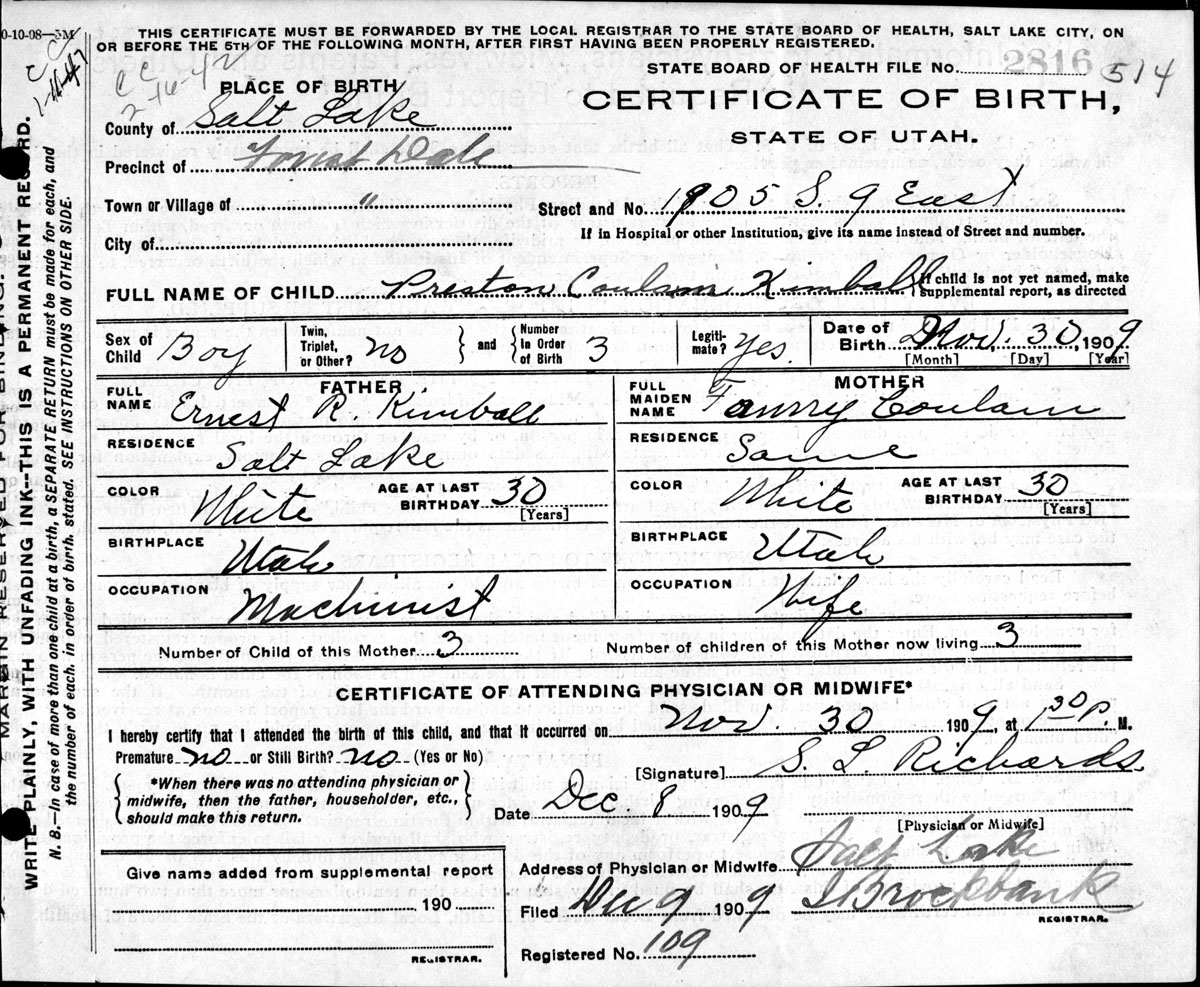 0-10-08—5M
THIS CERTIFICATE MUST BE FORWARDED BY THE LOCAL REGISTRAR TO THE STATE BOARD OF HEALTH, SALT LAKE CITY, ON
OR BEFORE THE 5TH OF THE FOLLOWING MONTH, AFTER FIRST HAVING BEEN PROPERLY REGISTERED.
STATE BOARD OF HEALTH FILE No. 2816 514
PLACE OF BIRTH
CERTIFICATE OF BIRTH,
STATE OF UTAH.
County of Salt Lake
Precinct of Forest Dale
Town or Village of "
Street and No. 1905 S. 9 East
If in Hospital or other Institution, give its name instead of Street and number.
City of
FULL NAME OF CHILD Preston Coulam Kimball {If child is not yet named, make
supplemental report, as directed
Sex of Child Boy
Twin, Triplet, or Other? no } and { Number In Order of Birth 3
Legiti- mate? Yes
Date of Birth Nov. 30, 1909
[Month] [Day] [Year]
FATHER
FULL NAME Ernest R. Kimball
RESIDENCE Salt Lake
COLOR White AGE AT LAST BIRTHDAY 30 [Years]
BIRTHPLACE Utah
OCCUPATION Machinist
MOTHER
FULL MAIDEN NAME Fanny Coulam
RESIDENCE Same
COLOR White AGE AT LAST BIRTHDAY 30 [Years]
BIRTHPLACE Utah
OCCUPATION Wife
Number of Child of this Mother 3 Number of children of this Mother now living 3
CERTIFICATE OF ATTENDING PHYSICIAN OR MIDWIFE*
I hereby certify that I attended the birth of this child, and that it occurred on Nov. 30 1909, at 1 30 P. M.
Premature no or Still Birth? no (Yes or No)
[Signature] S. L. Richards
{ *When there was no attending physician or
midwife, then the father, householder, etc.,
should make this return. }
Date Dec 8 1909
[Physician or Midwife]
Address of Physician or Midwife Salt Lake
Give name added from supplemental report
190
REGISTRAR.
Filed Dec 9 1909 Brockbank
REGISTRAR.
Registered No. 109
WRITE PLAINLY, WITH UNFADING INK—THIS IS A PERMANENT RECORD.
N. B.—In case of more than one child at a birth, a SEPARATE RETURN must be made for each, and
the number of each, in order of birth, stated. SEE INSTRUCTIONS ON OTHER SIDE.